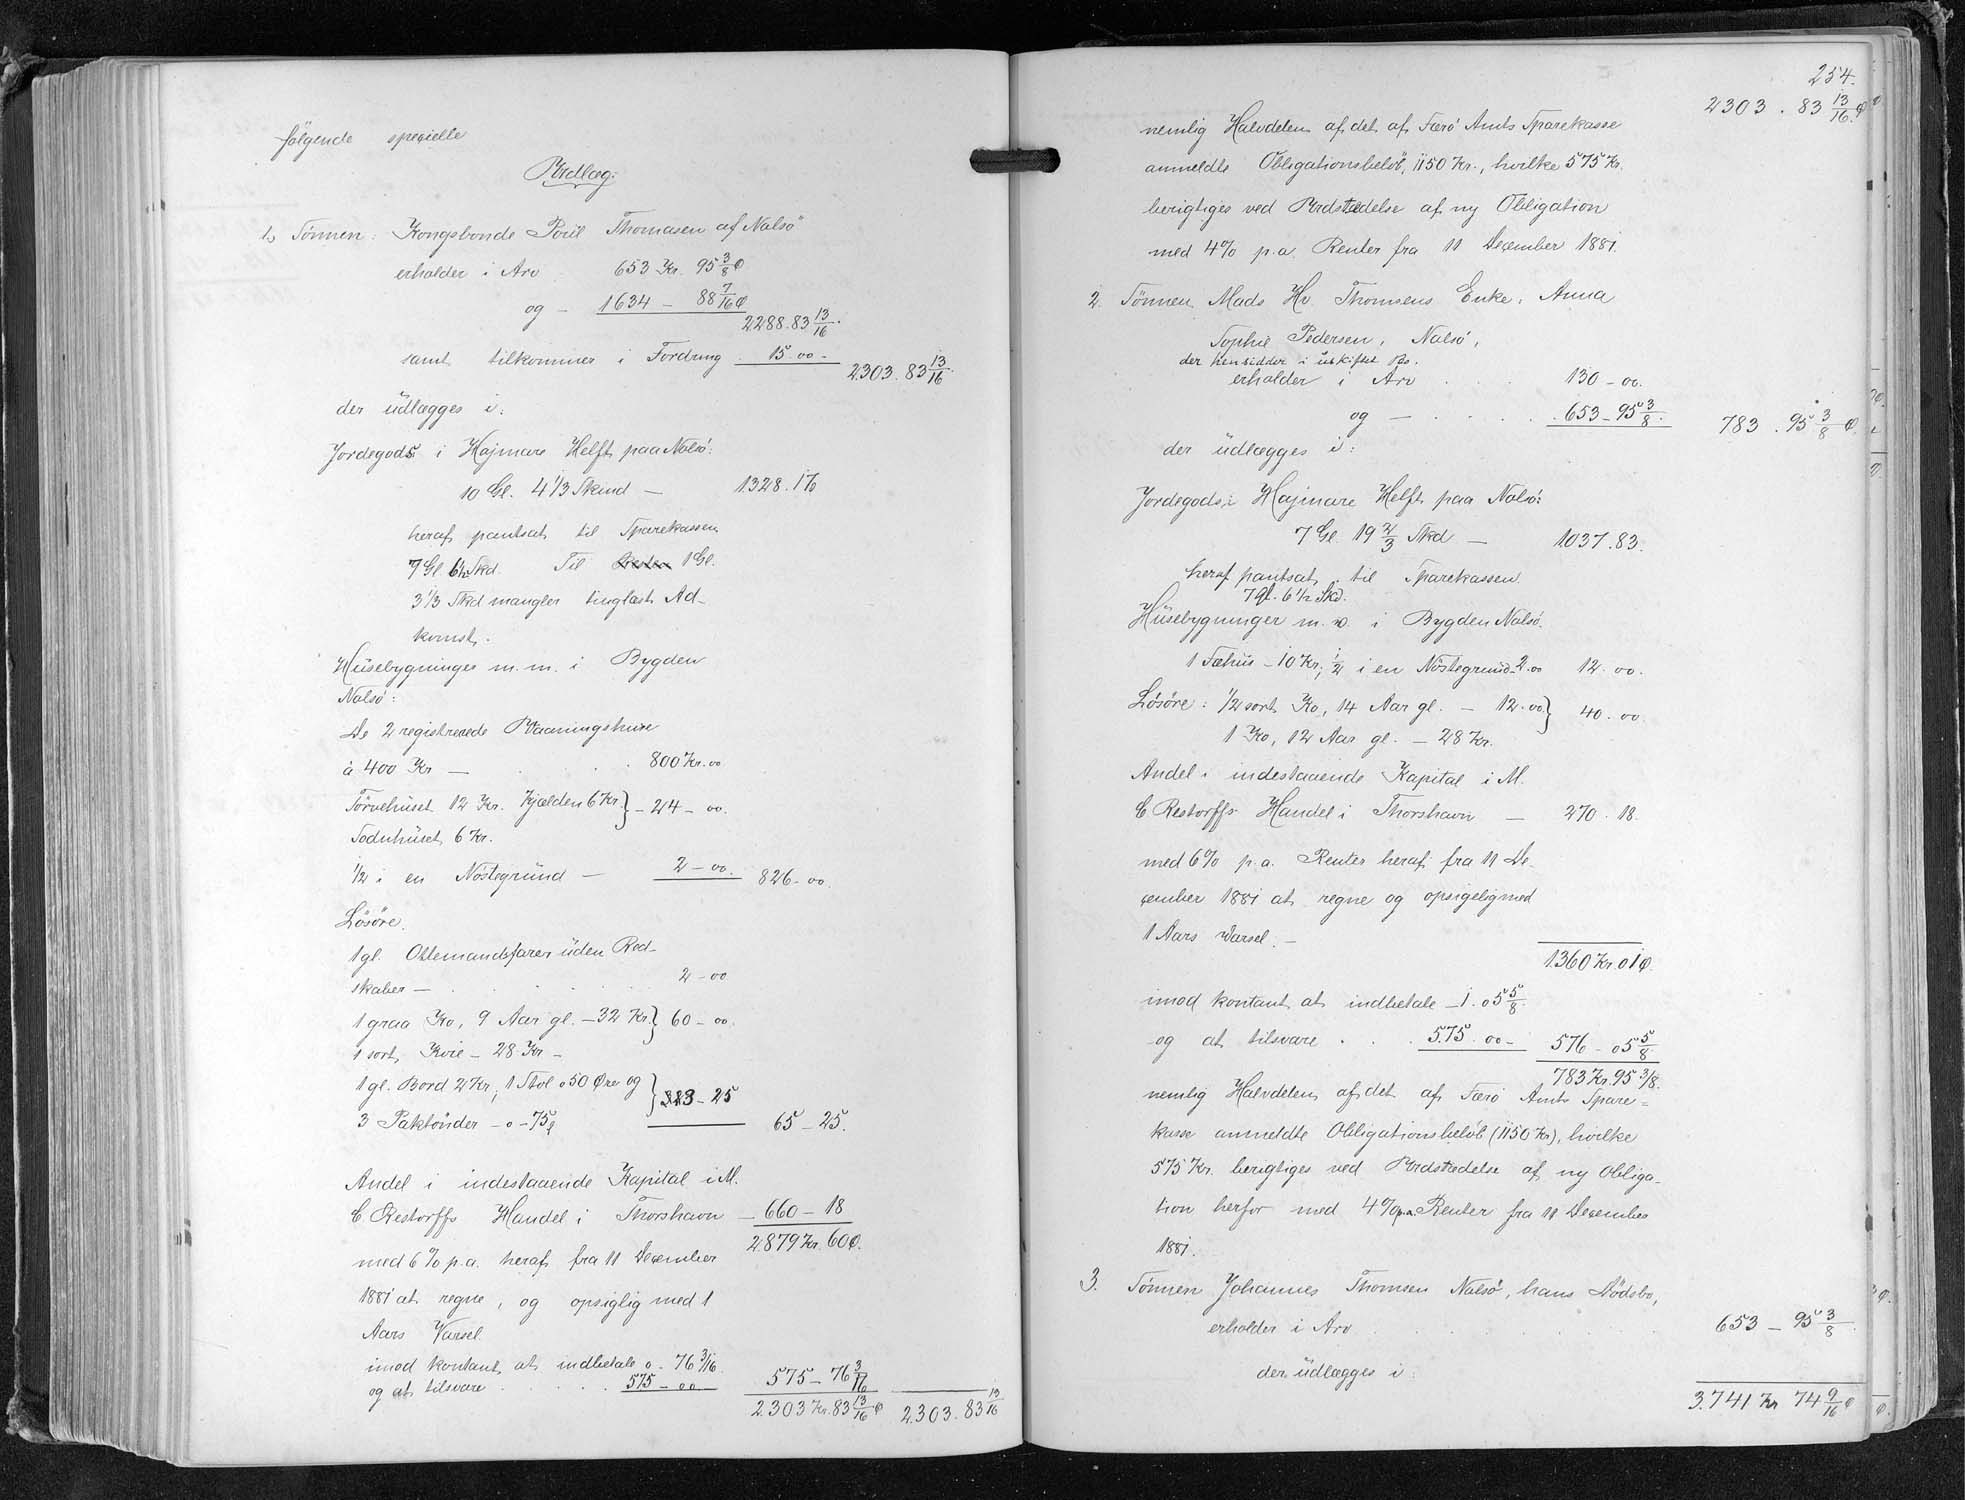 følgende specielle
Udlæg:
1, Sönnen: Kongsbonde Poül Thomasen af Nalsö
erholder i Arv 653 Kr. 95 3/8 Ø
og - 1634 - 88 7/16 Ø
2288.83 13/16.
samt tilkommer i Fordring . 15.00 -
2303.83 13/16.
der üdlægges i:
Jordegods i Hajmare Helft paa Nalsö:
10 Gl. 4 1/3 Skind - 1328.17
heraf pantsat til Sparekassen
7 Gl. 6 1/2 Skd. Til 1 Gl.
3 1/3 Skd mangler tinglæst Ad-
komst.
Hüsebygninger m.m. i Bygden
Nalsö:
De 2 registrerede Vaaningshuse
à 400 Kr - . . 800 Kr. 00
Törvehüset 12 Kr. Kjælderen 6 Kr. } - 24 - 00.
Sodnhüset 6 Kr.
1/2 i en Nöstegründ - 2 - 00. 826 - 00.
Lösöre.
1 gl. Ottemandsfarer üden Red-
skaber - . . . 2 - 00
1 graa Ko, 9 Aar gl. - 32 Kr. } 60 - 00.
1 sort Kvie - 28 Kr -
1 gl. Bord 2 Kr, 1 Stol 0 50 Øre og } 3 - 25
3 Saktönder - 0 - 75
65 - 25.
Andel i indestaaende Kapital i M.
C. Restorffs Handel i Thorshavn - 660 - 18
2879 Kr. 60 Ø.
med 6 % p.a. heraf fra 11 December
1881 at regne, og opsiglig med 1
Aars Varsel.
imod kontant at indbetale 0 - 76 3/16
og at tilsvare . . . 575 - 00 575 - 76 3/16
2303 Kr. 83 13/16 Ø 2.303.83 13/16
254.
2303 . 83 13/16 Ø
nemlig Halvdelen af det af Færö Amts Sparekasse
anmeldte Obligationsbelöb, 1150 Kr., hvilke 575 Kr.
berigtiges ved Udstedelse af ny Obligation
med 4 % p.a. Renter fra 11 December 1881.
2. Sönnen Mads Hv. Thomsens Enke, Anna
Sophie Pedersen, Nalsö,
der hensidder i uskiftet Bo.
erholder i Arv . . . 130 - 00.
og - . . . . 653 - 95 3/8. 783 . 95 3/8 Ø.
der üdlægges i:
Jordegods i Hajmare Helft paa Nalsö:
7 Gl. 19 2/3 Skd - 1037.83.
heraf pantsat til Sparekassen
7 gl. 6 1/2 Skd.
Hüsebygninger m.v. i Bygden Nalsö.
1 Fæhüs - 10 Kr., 1/2 i en Nöstegrund 2.00 12.00.
Lösöre: 1/2 sort Ko, 14 Aar gl. - 12.00 } 40.00
1 Ko, 12 Aar gl. - 28 Kr.
Andel i indestaaende Kapital i M.
C Restorffs Handel i Thorshavn - 270.18.
med 6 % p.a. Renter heraf fra 11 De-
cember 1881 at regne og opsigelig med
1 Aars Varsel. -
1360 Kr. 01 Ø.
imod kontant at indbetale - 1.05 5/8.
og at tilsvare . . . 575.00 - 576 - 05 5/8
783 Kr. 95 3/8.
nemlig Halvdelen af det af Færö Amts Spare=
kasse anmeldte Obligationsbelöb (1150 Kr), hvilke
575 Kr. berigtiges ved Udstedelse af ny Obliga-
tion herfor med 4 % p.a. Renter fra 11 December
1881.
3. Sönnen Johannes Thomsen Nalsö, hans Dödsbo,
erholder i Arv . . . . 653 - 95 3/8.
der üdlægges i:
3.741 Kr 74 9/16 Ø